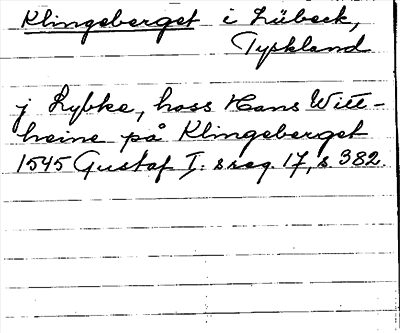 Klingeberget i Lübeck,
Tyskland
j Lybke, hoss Hans Witt-
heine på Klingeberget
1545 Gustaf I: s reg. 17, s 382.